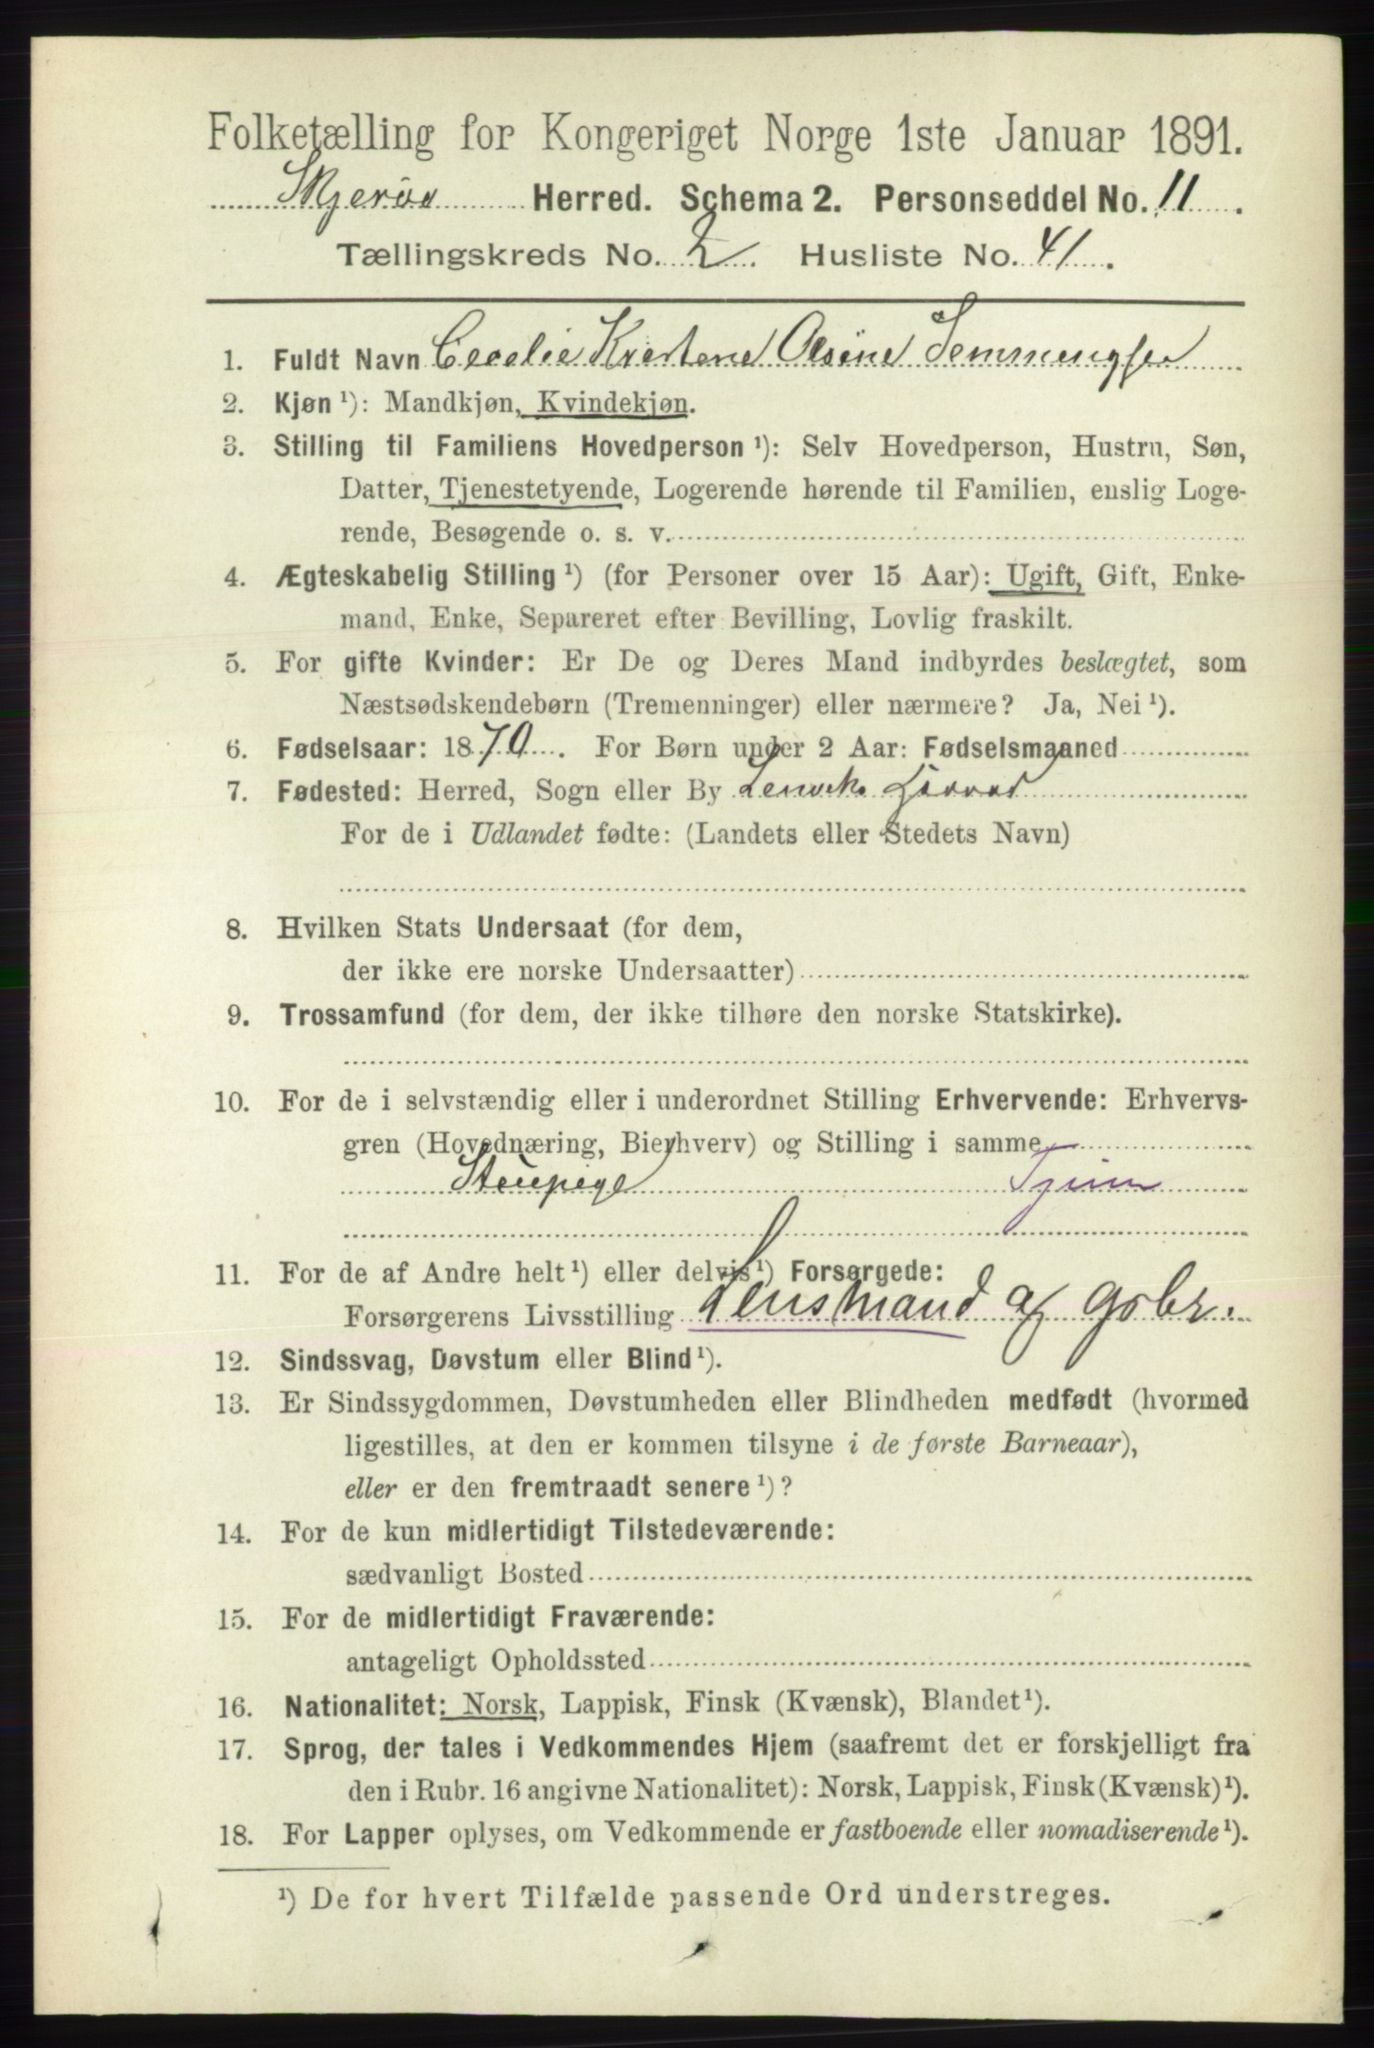 Folketælling for Kongeriget Norge 1ste Januar 1891.
Skjervø Herred. Schema 2. Personseddel No. 11.
Tællingskreds No. 2. Husliste No. 41.
1. Fuldt Navn Cecelie Krestene Olsine Jemmengsen
2. Kjøn ¹): Mandkjøn, Kvindekjøn.
3. Stilling til Familiens Hovedperson ¹): Selv Hovedperson, Hustru, Søn,
Datter, Tjenestetyende, Logerende hørende til Familien, enslig Loge-
rende, Besøgende o. s. v.
4. Ægteskabelig Stilling ¹) (for Personer over 15 Aar): Ugift, Gift, Enke-
mand, Enke, Separeret efter Bevilling, Lovlig fraskilt.
5. For gifte Kvinder: Er De og Deres Mand indbyrdes beslægtet, som
Næstsødskendebørn (Tremenninger) eller nærmere? Ja, Nei ¹).
6. Fødselsaar: 1870. For Børn under 2 Aar: Fødselsmaaned
7. Fødested: Herred, Sogn eller By Lenvik Herred
For de i Udlandet fødte: (Landets eller Stedets Navn)
8. Hvilken Stats Undersaat (for dem,
der ikke ere norske Undersaatter)
9. Trossamfund (for dem, der ikke tilhøre den norske Statskirke).
10. For de i selvstændig eller i underordnet Stilling Erhvervende: Erhvervs-
gren (Hovednæring, Bierhverv) og Stilling i samme
Stuepige
11. For de af Andre helt ¹) eller delvis ¹) Forsørgede:
Forsørgerens Livsstilling Lensmand og Gbr.
12. Sindssvag, Døvstum eller Blind ¹).
13. Er Sindssygdommen, Døvstumheden eller Blindheden medfødt (hvormed
ligestilles, at den er kommen tilsyne i de første Barneaar),
eller er den fremtraadt senere ¹)?
14. For de kun midlertidigt Tilstedeværende:
sædvanligt Bosted
15. For de midlertidigt Fraværende:
antageligt Opholdssted
16. Nationalitet: Norsk, Lappisk, Finsk (Kvænsk), Blandet ¹).
17. Sprog, der tales i Vedkommendes Hjem (saafremt det er forskjelligt fra
den i Rubr. 16 angivne Nationalitet): Norsk, Lappisk, Finsk (Kvænsk) ¹).
18. For Lapper oplyses, om Vedkommende er fastboende eller nomadiserende ¹).
¹) De for hvert Tilfælde passende Ord understreges.